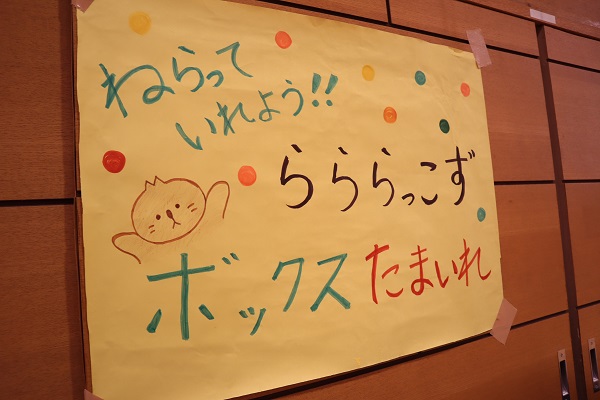 ねらって
いれよう!!
らららっこず
ボックスたまいれ